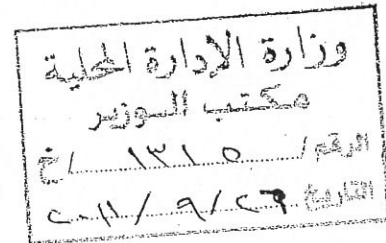 وزارة الإدارة المحلية
مكتب الوزير
الرقم / ١٣١٠٥ / خ
التاريخ ٢٦ / ٩ / ٢٠١١